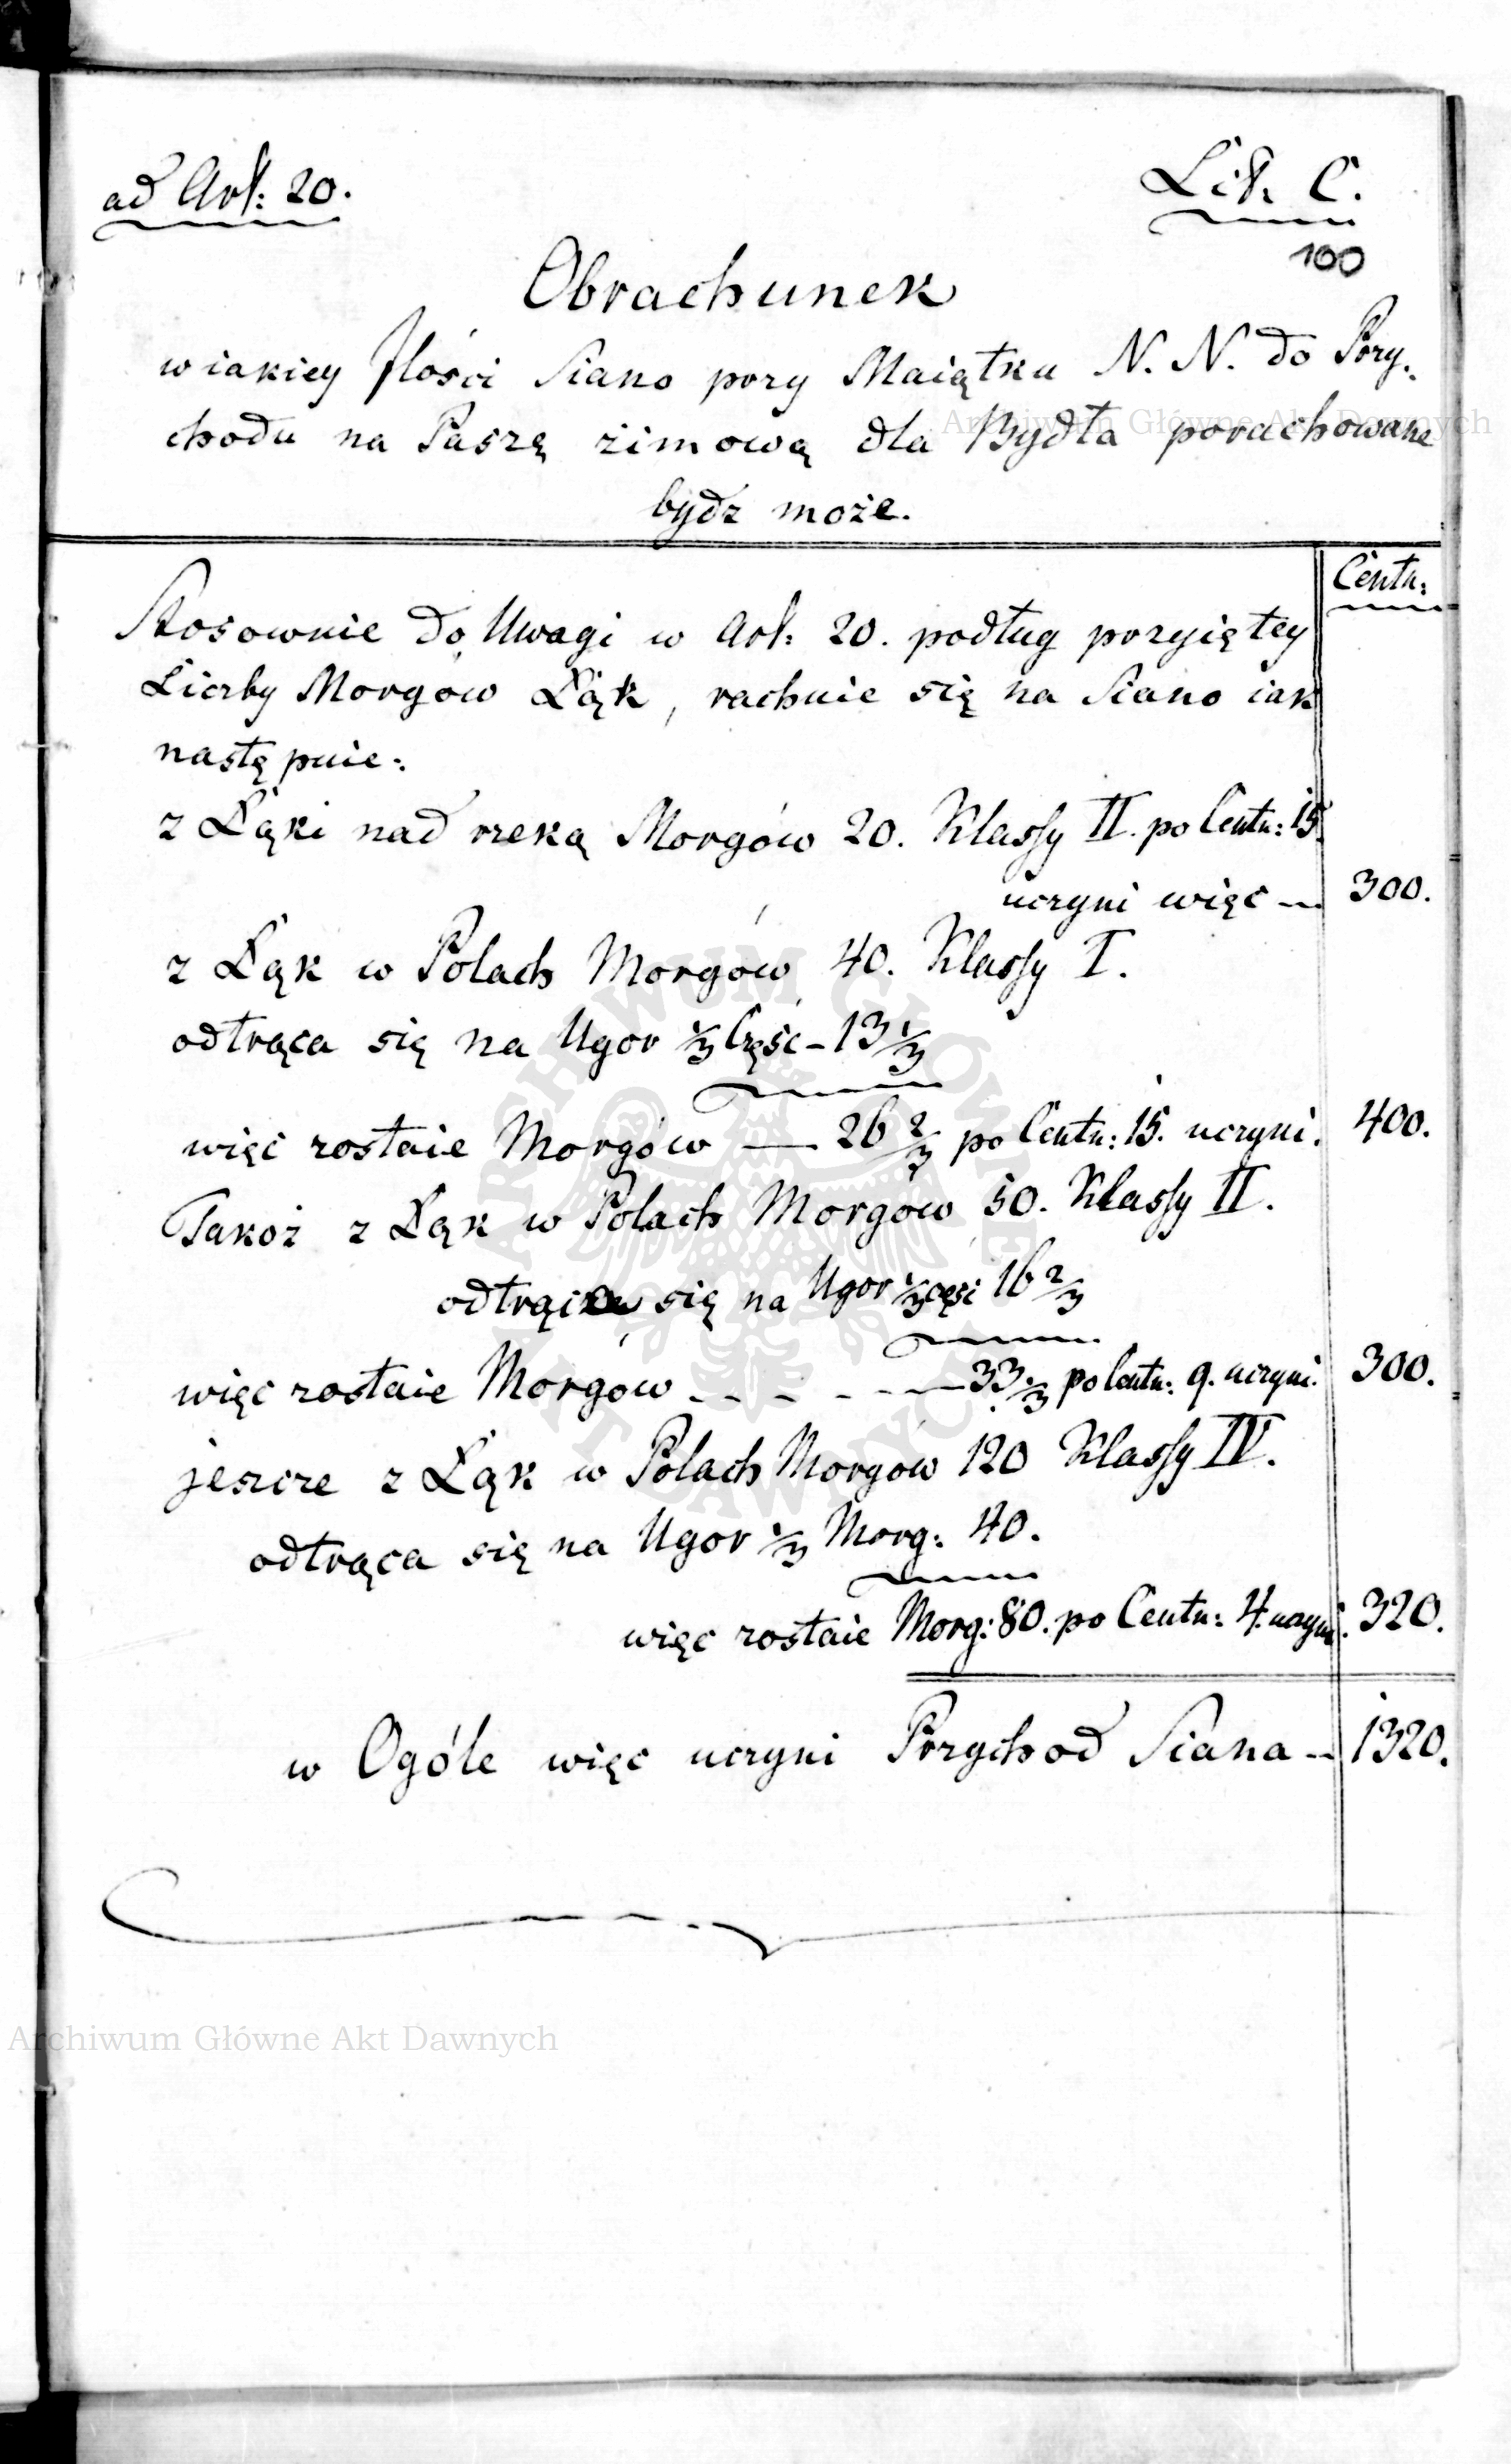 ad Art: 20.
Lit. C.
100
Obrachunek
w iakiey Ilości Siano przy Maiątku N. N. do Przy-
chodu na Paszę zimową dla Bydła porachowane
bydz może.
Centn:
Stosownie do Uwagi w Art: 20. podług przyiętey
Liczby Morgów Łąk, rachuie się na Siano iak
następuie:
z Łąki nad rzeką Morgów 20. Klassy II. po Centn: 15.
uczyni więc — 300.
z Łąk w Polach Morgów 40. Klassy I.
odtrąca się na Ugor ⅓ Część – 13 ⅓
więc zostaie Morgów — 26 ⅔ po Centn: 15. uczyni. 400.
Takoż z Łąk w Polach Morgów 50. Klassy II.
odtrąca się na Ugor ⅓ częsć 16 ⅔
więc zostaie Morgów - - - - - — 33 ⅓ po Centn: 9. uczyni. 300.
jeszcze z Łąk w Polach Morgów 120 Klassy IV.
odtrąca się na Ugor ⅓ Morg: 40.
więc zostaie Morg: 80. po Centn: 4. uczyni. 320.
w Ogóle więc uczyni Przychod Siana — 1320.
Archiwum Główne Akt Dawnych
Archiwum Główne Akt Dawnych
ARCHIWUM GŁÓWNE AKT DAWNYCH